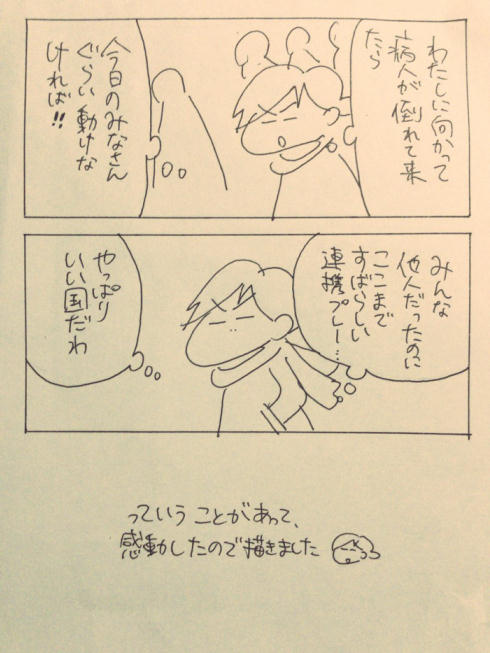 わたしに向かって
病人が倒れて来
たら
今日のみなさん
ぐらい動けな
ければ!!
みんな
他人だったのに
ここまで
すばらしい
連携プレー…
やっぱり
いい国だわ
っていうことがあって、
感動したので描きました